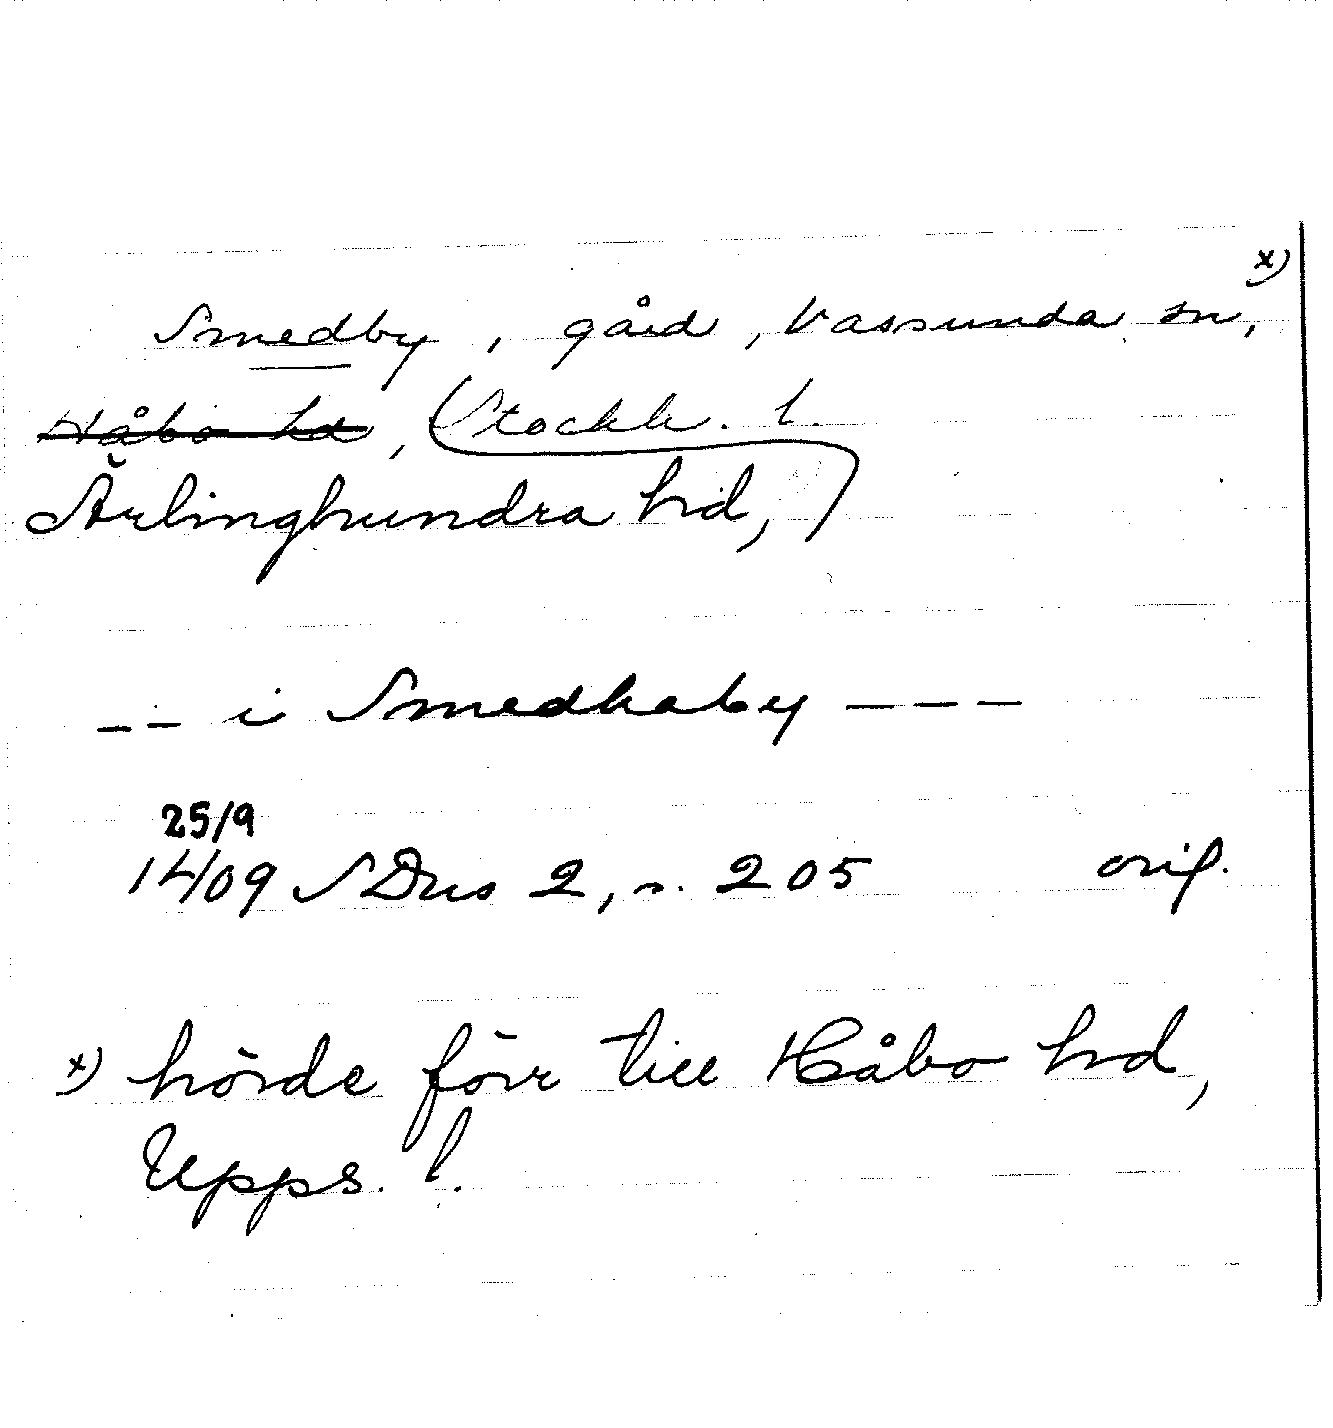 x)
Smedby, gård, Vassunda sn,
Håbo hd, Stockh. l.
Ärlinghundra hd,
-- i Smedhaby ---
25/9
1409 SDns 2, s. 205 orig.
x) hörde förr till Håbo hd,
Upps. l.